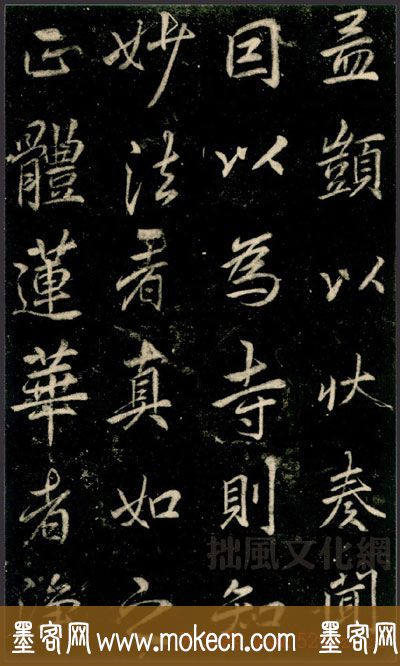 孟顗以狀奏聞
囙以為寺則知
妙法者真如之
正體蓮華者淨
拙風文化網
墨客网 www.mokecn.com 墨客网